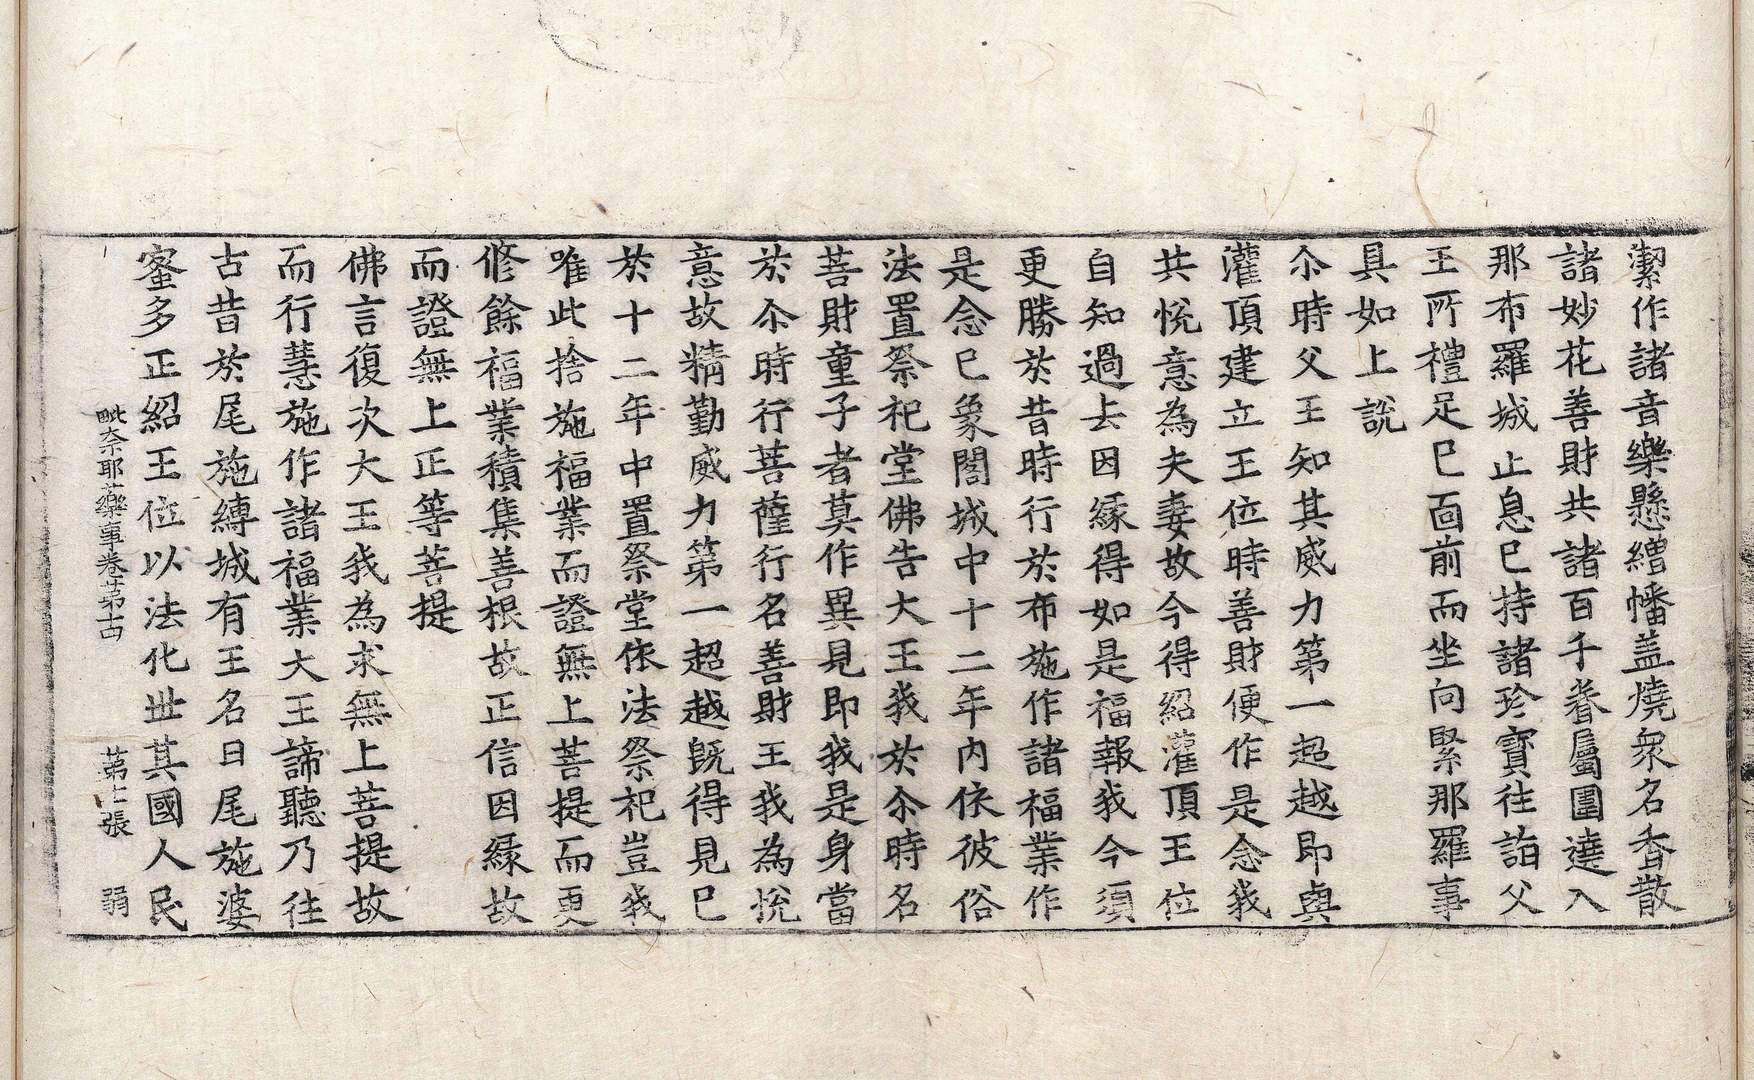 潔作諸音樂懸繒幡盖燒衆名香散
諸妙花善財共諸百千眷屬圍遶入
那布羅城止息已持諸珍寶往詣父
王所禮足已面前而坐向緊那羅事
具如上說
尒時父王知其威力第一超越即與
灌頂建立王位時善財便作是念我
共悅意為夫妻故今得紹灌頂王位
自知過去因緣得如是福報我今須
更勝於昔時行於布施作諸福業作
是念已象閣城中十二年內依彼俗
法置祭祀堂佛告大王我於尒時名
善財童子者莫作異見即我是身當
於尒時行菩薩行名善財王我為悅
意故精勤威力第一超越旣得見已
於十二年中置祭堂依法祭祀豈我
唯此捨施福業而證無上菩提而更
修餘福業積集善根故正信因緣故
而證無上正等菩提
佛言復次大王我為求無上菩提故
而行慧施作諸福業大王諦聽乃往
古昔於尾施縛城有王名曰尾施婆
蜜多正紹王位以法化世其國人民
毗奈耶藥事卷第十四 第七張 弱